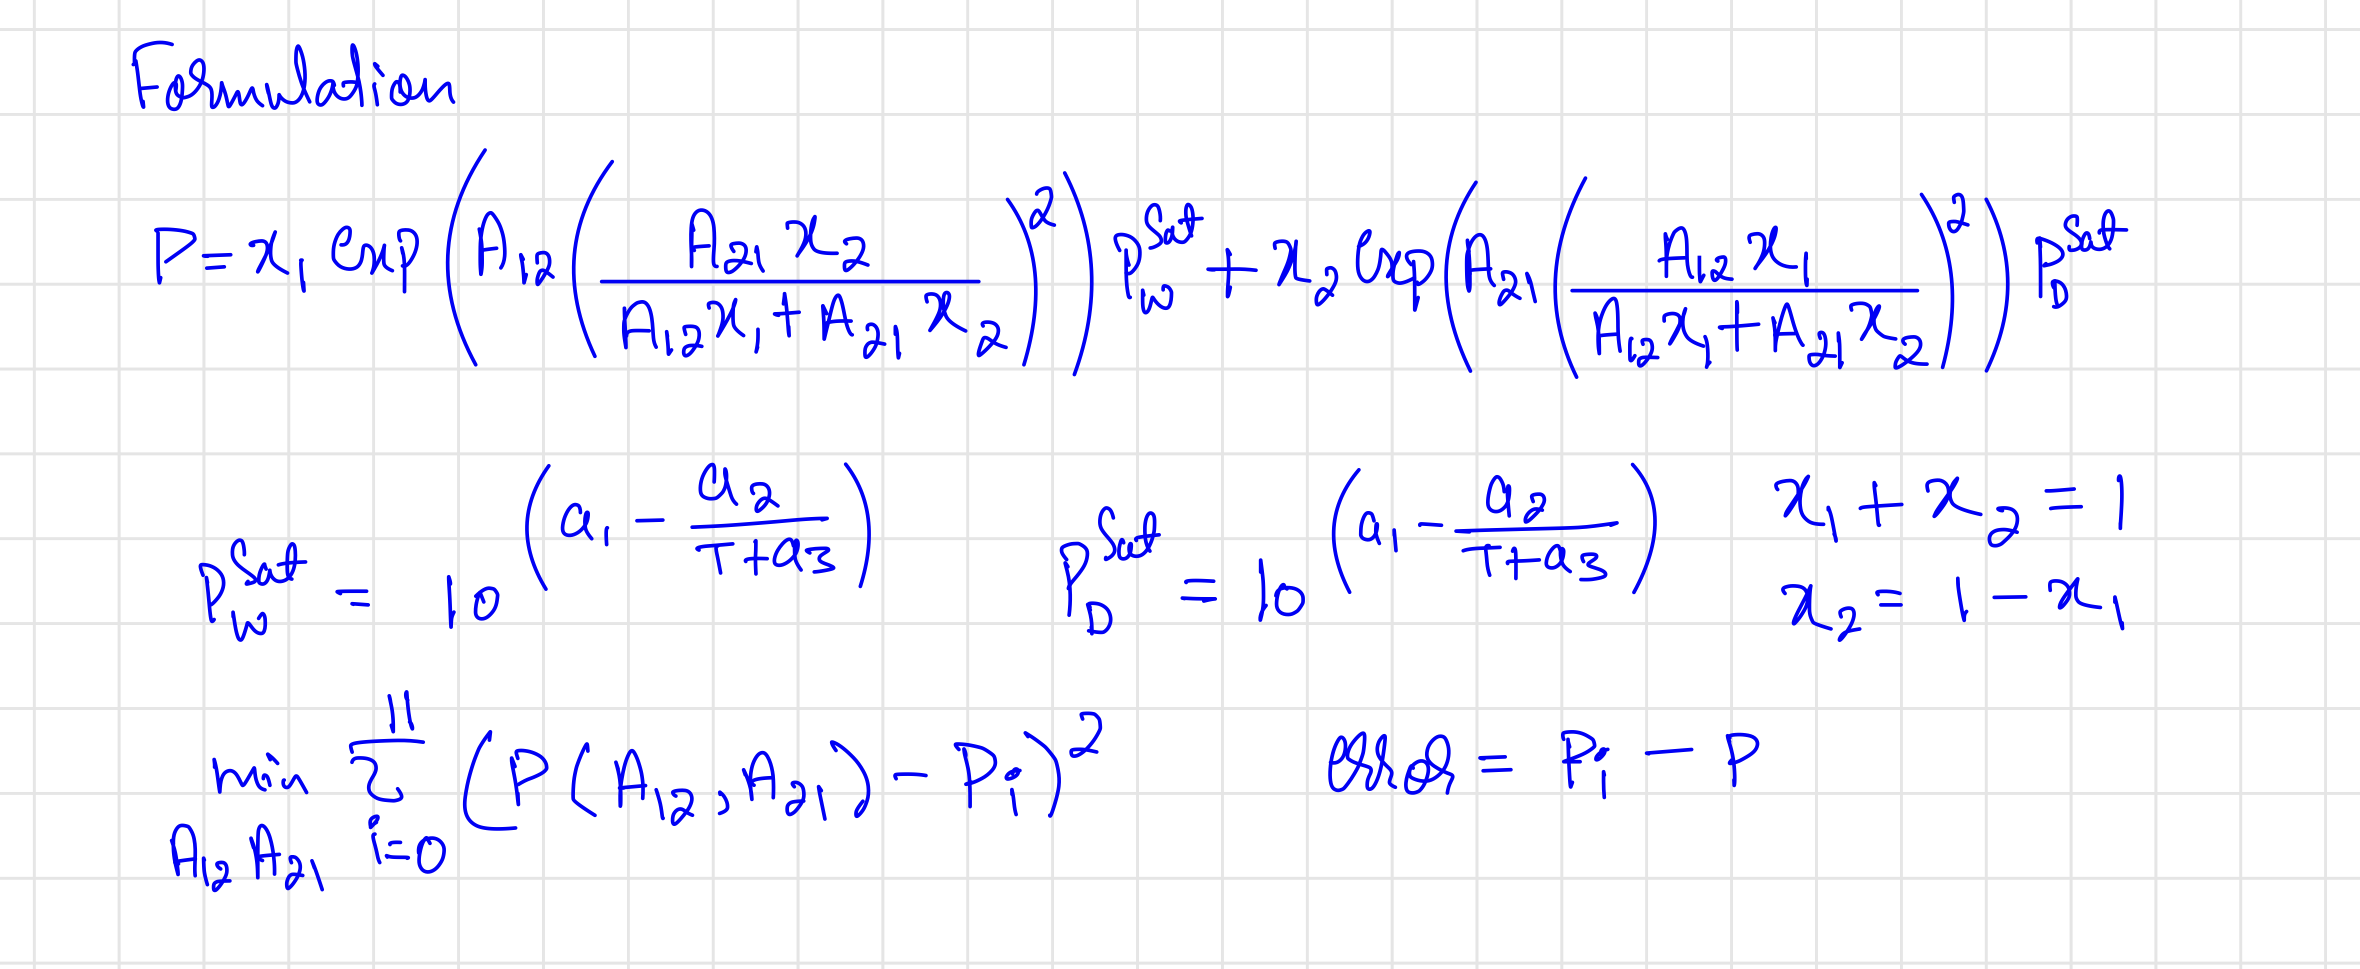 Formulation
P = x₁ exp(A₁₂(A₂₁x₂/(A₁₂x₁ + A₂₁x₂))²) P_W^Sat + x₂ exp(A₂₁(A₁₂x₁/(A₁₂x₁ + A₂₁x₂))²) P_D^Sat
P_W^Sat = 10^(a₁ - a₂/(T+a₃)) P_D^Sat = 10^(a₁ - a₂/(T+a₃)) x₁ + x₂ = 1
x₂ = 1 - x₁
min_{A₁₂ A₂₁} Σ_{i=0}^{11} (P(A₁₂, A₂₁) - Pᵢ)² error = Pᵢ - P